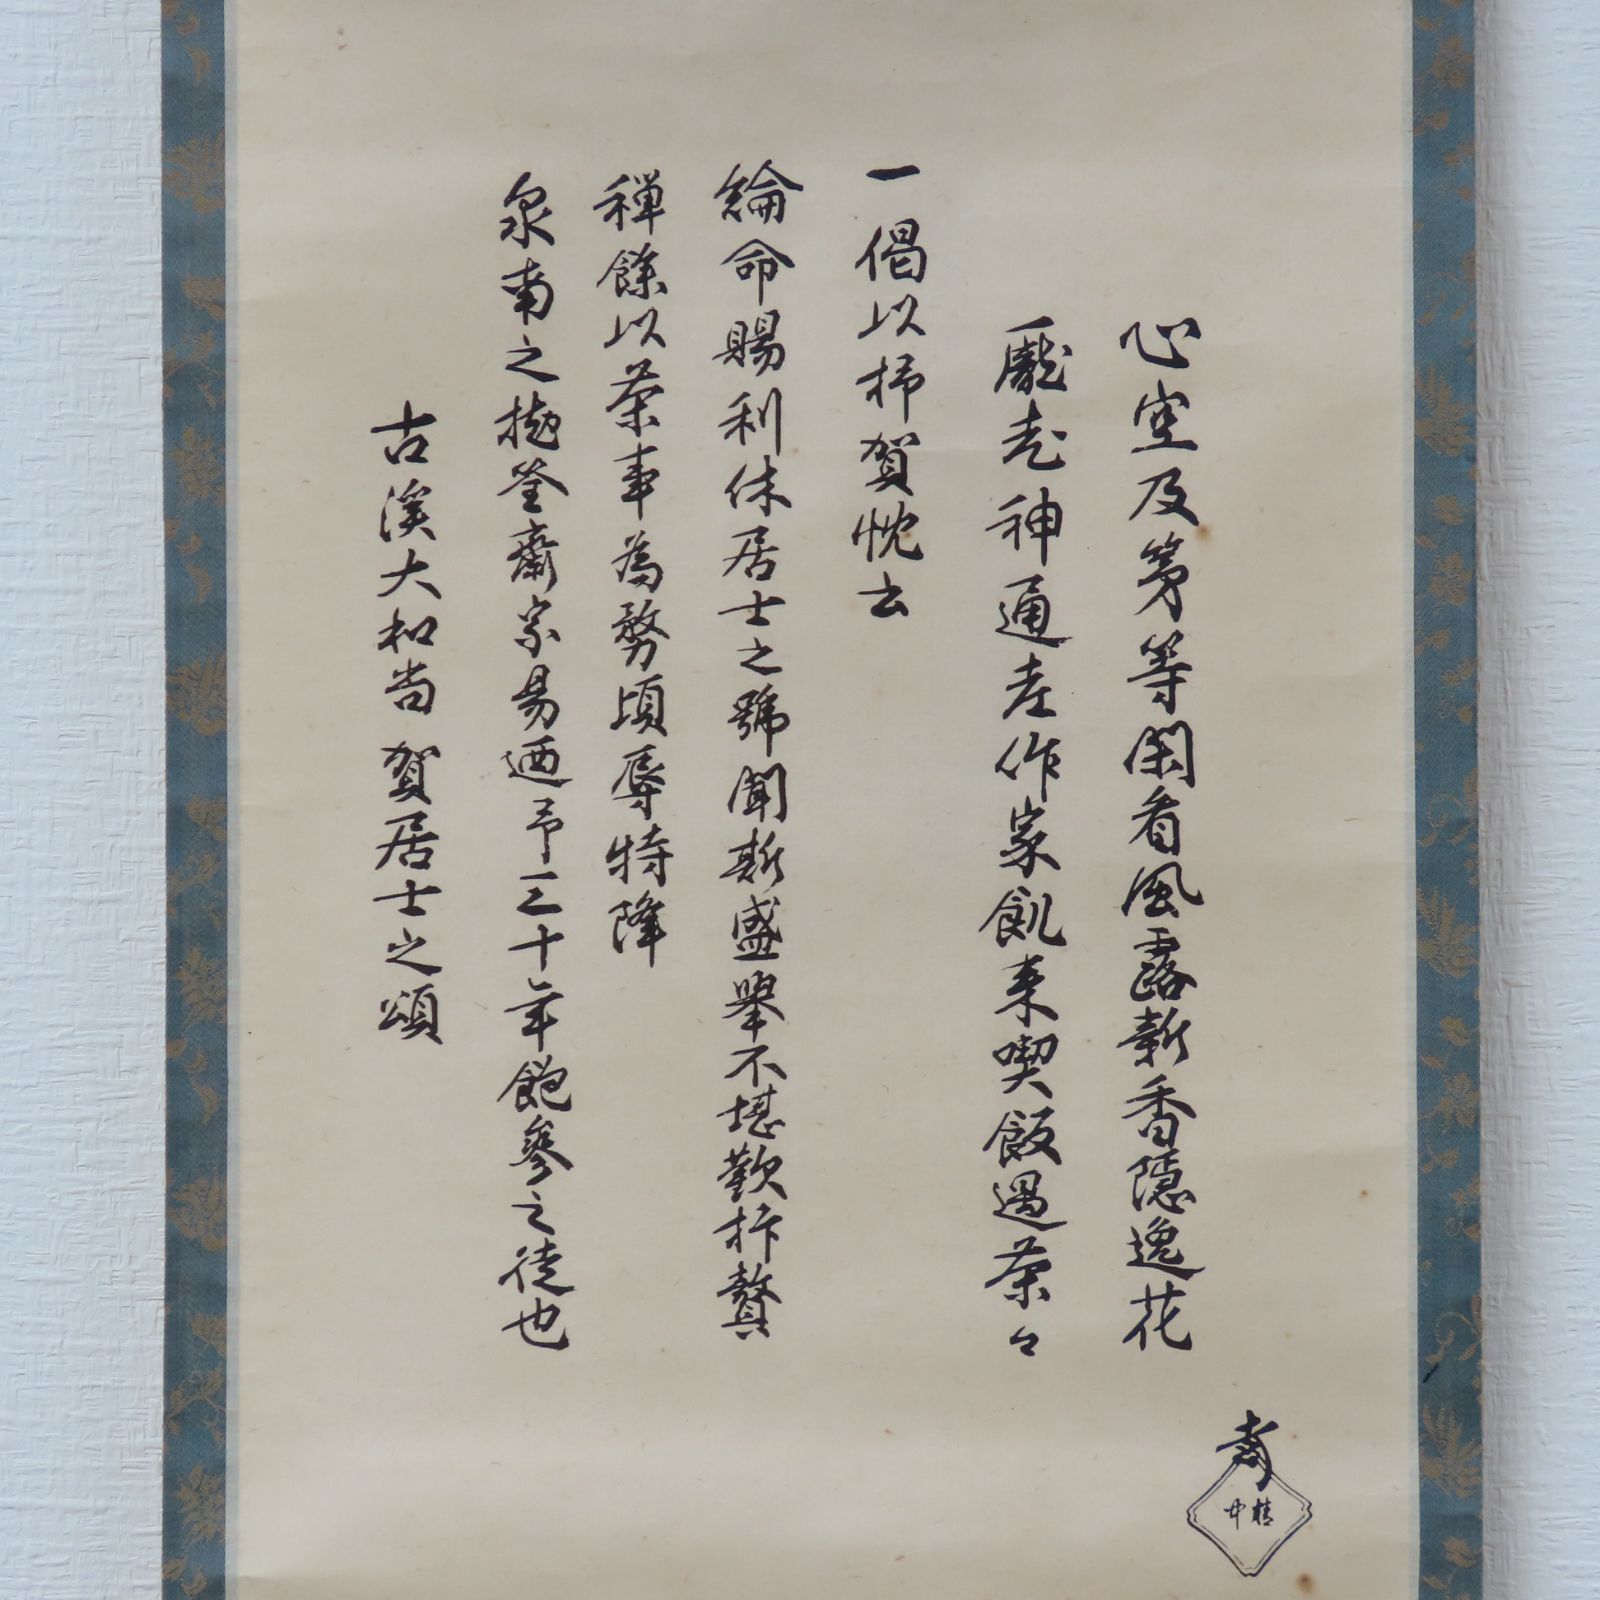 古溪大和尚 賀居士之頌
泉南之抛筌齋宗易廼予三十年飽參之徒也
禪餘以茶事為務頃辱特降
綸命賜利休居士之號聞斯盛擧不堪歡抃贅
一偈以抒賀忱云
龐老神通老作家飢来喫飯遇茶々
心空及第等閑看風露新香隱逸花